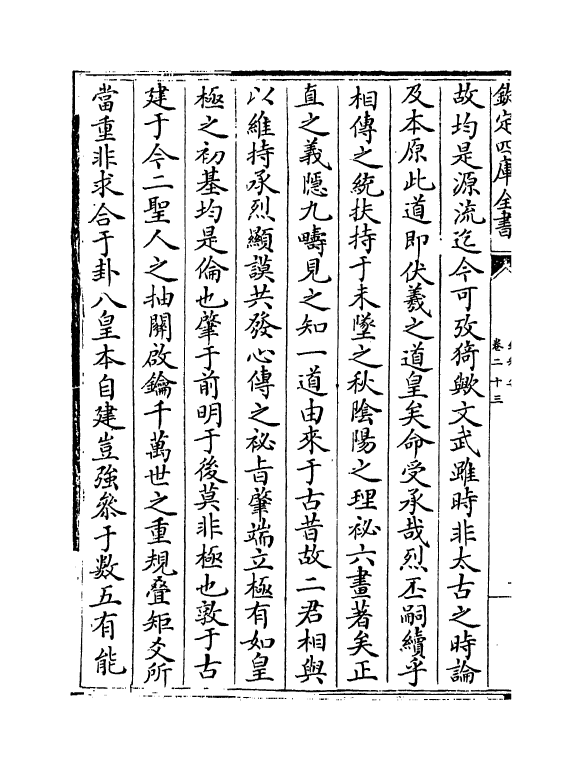 欽定四庫全書
卷二十三
故均是源流迄今可攷猗歟文武雖時非太古之時論
及本原此道即伏羲之道皇矣命受承哉烈丕嗣續乎
相傳之統扶持于未墜之秋陰陽之理祕六畫著矣正
直之義隱九疇見之知一道由來于古昔故二君相與
以維持承烈顯謨共發心傳之祕旨肇端立極有如皇
極之初基均是倫也肇于前明于後莫非極也敦于古
建于今二聖人之抽關啟鑰千萬世之重規疊矩爻所
當重非求合于卦八皇本自建豈強叅于數五有能